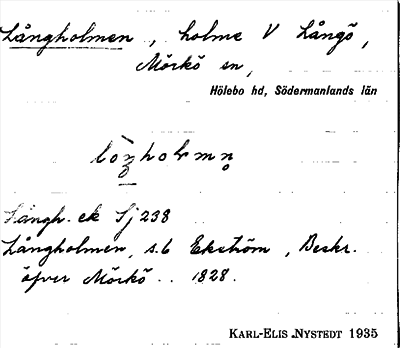 Långholmen, holme V Långö,
Mörkö sn,
Hölebo hd, Södermanlands län
Långh. ek Sj 238
Långholmen, s. 6 Ekström, Beskr.
öfver Mörkö .. 1828.
KARL-ELIS NYSTEDT 1935